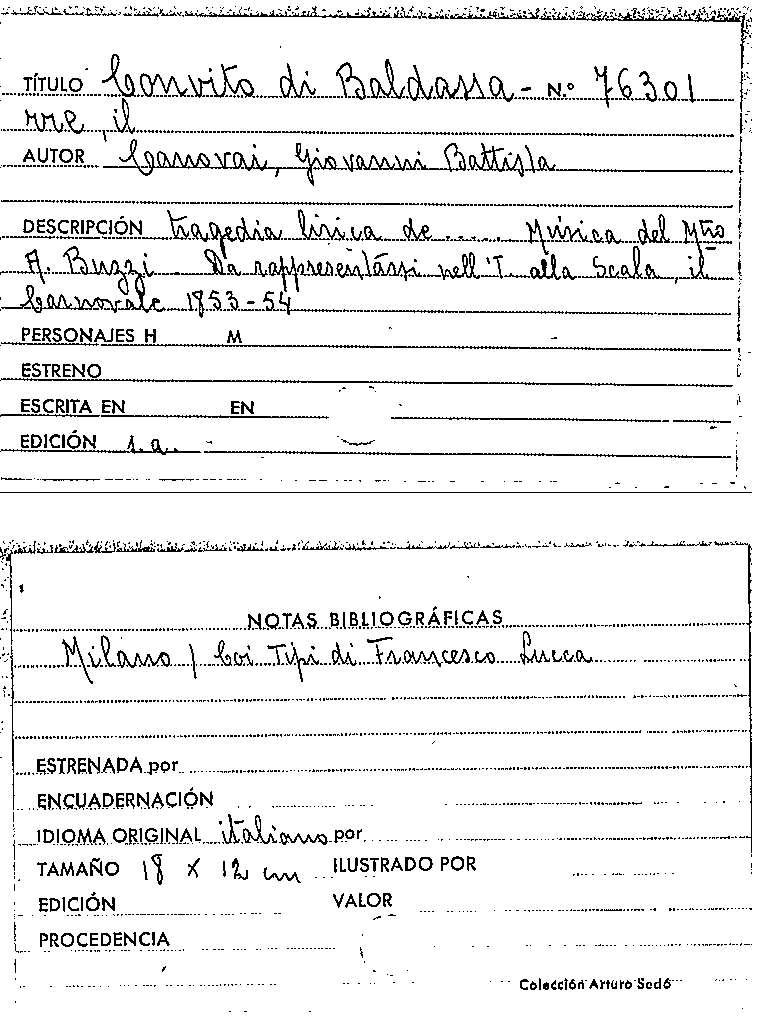 TÍTULO Convito di Baldassa- N.º 76301
rre, il
AUTOR Canovai, Giovanni Battista
DESCRIPCIÓN tragedia lirica de ..... Música del Mtro
A. Buzzi. Da rappresentarsi nell'I. T. alla Scala, il
Carnovale 1853-54
PERSONAJES H M
ESTRENO
ESCRITA EN EN
EDICIÓN s.a.
NOTAS BIBLIOGRÁFICAS
Milano / Coi Tipi di Francesco Lucca
ESTRENADA por
ENCUADERNACIÓN
IDIOMA ORIGINAL italiano por
TAMAÑO 18 X 12 cm ILUSTRADO POR
EDICIÓN VALOR
PROCEDENCIA
Colección Arturo Sedó